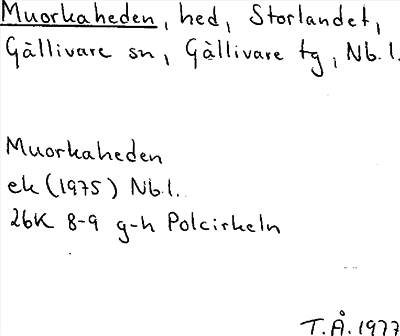 Muorkaheden, hed, Storlandet,
Gällivare sn, Gällivare tg, Nb.l.
Muorkaheden
ek (1975) Nb.l.
26K 8-9 g-h Polcirkeln
T.Å.1977